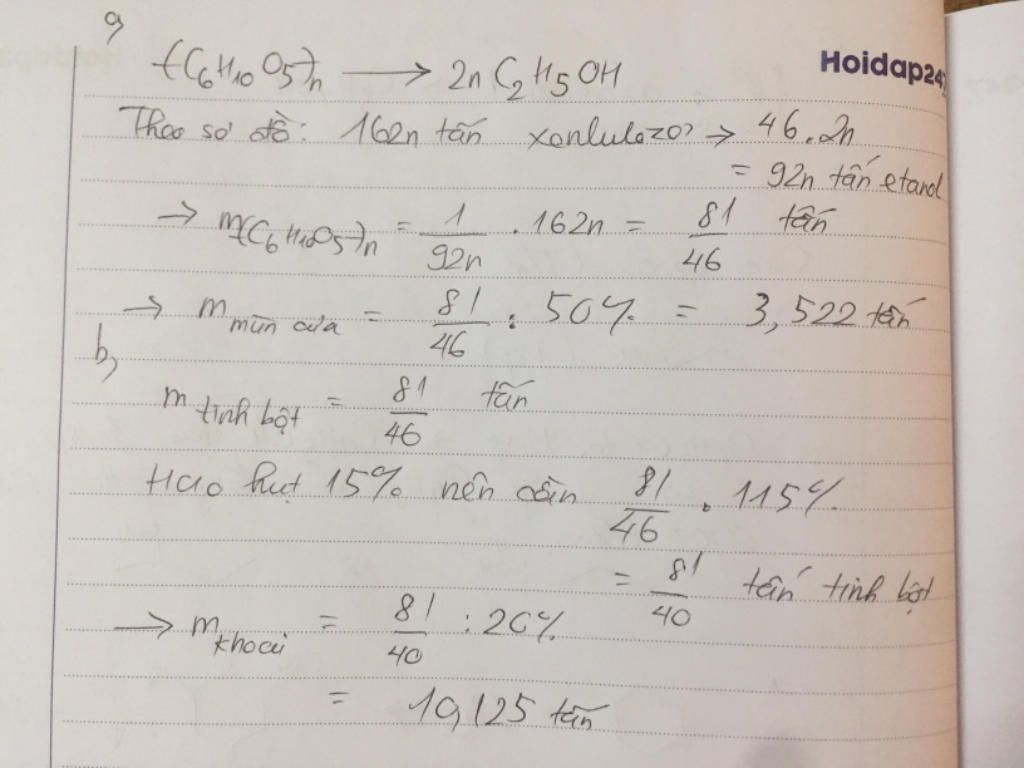 a,
-(C6H10O5)n ⟶ 2n C2H5OH
Hoidap247
Theo sơ đồ: 162n tấn xenlulozơ → 46.2n
= 92n tấn etanol
→ m-(C6H10O5)n = 1/92n . 162n = 81/46 tấn
→ m mùn cưa = 81/46 : 50% = 3,522 tấn
b,
m tinh bột = 81/46 tấn
Hao hụt 15% nên cần 81/46 . 115%
= 81/40 tấn tinh bột
→ m khoai = 81/40 : 20%
= 10,125 tấn